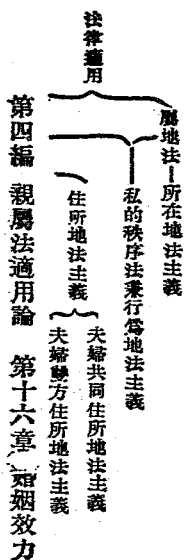 屬地法—所在地法主義
法律適用
私的秩序法兼行爲地法主義
住所地法主義
夫婦共同住所地法主義
夫婦雙方住所地法主義
第四編 親屬法適用論 第十六章 婚姻效力